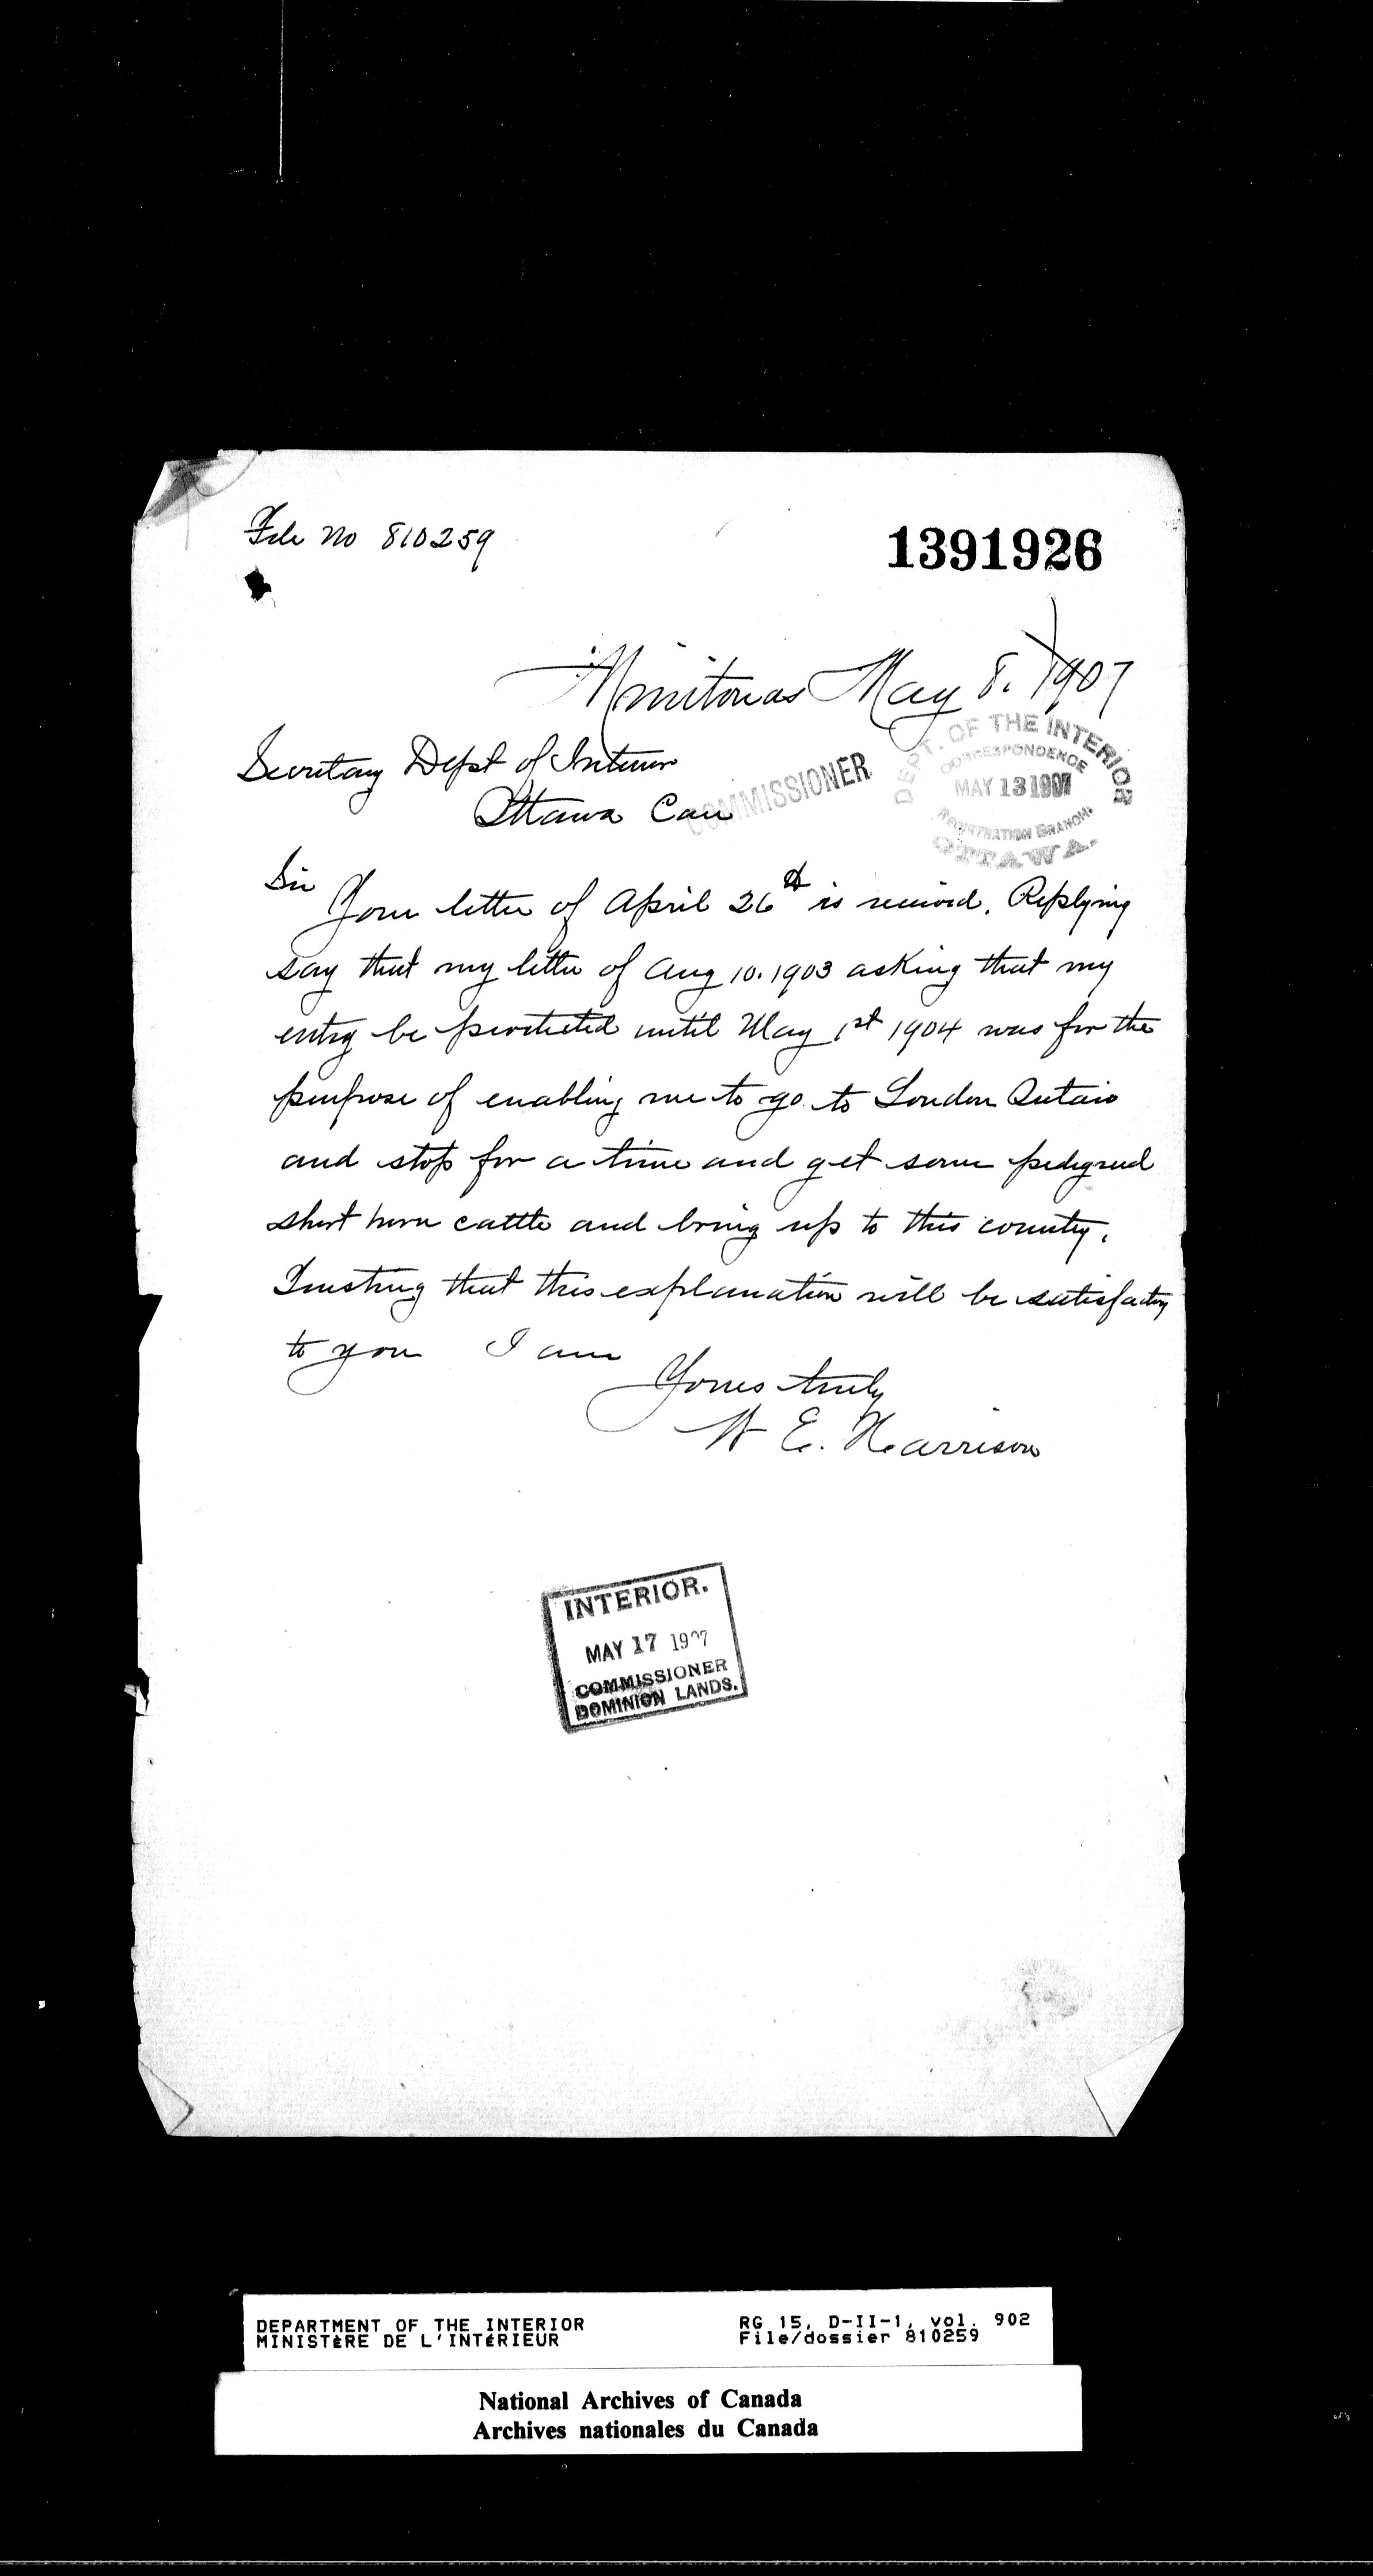 File No 810259
1391926
Minitonas May 8. 1907
Secretary Dept of Interior
Ottawa Can
COMMISSIONER
DEPT. OF THE INTERIOR
CORRESPONDENCE
MAY 13 1907
REGISTRATION BRANCH.
OTTAWA.
Sir
Your letter of April 26th is received. Replying
say that my letter of Aug 10. 1903 asking that my
entry be protected until May 1st 1904 was for the
purpose of enabling me to go to London Ontario
and stop for a time and get some pedigreed
short horn cattle and bring up to this country.
Trusting that this explanation will be satisfactory
to you I am
Yours truly
W E. Harrison
INTERIOR.
MAY 17 1907
COMMISSIONER
DOMINION LANDS.
DEPARTMENT OF THE INTERIOR
MINISTÈRE DE L'INTÉRIEUR
RG 15, D-II-1, vol. 902
File/dossier 810259
National Archives of Canada
Archives nationales du Canada